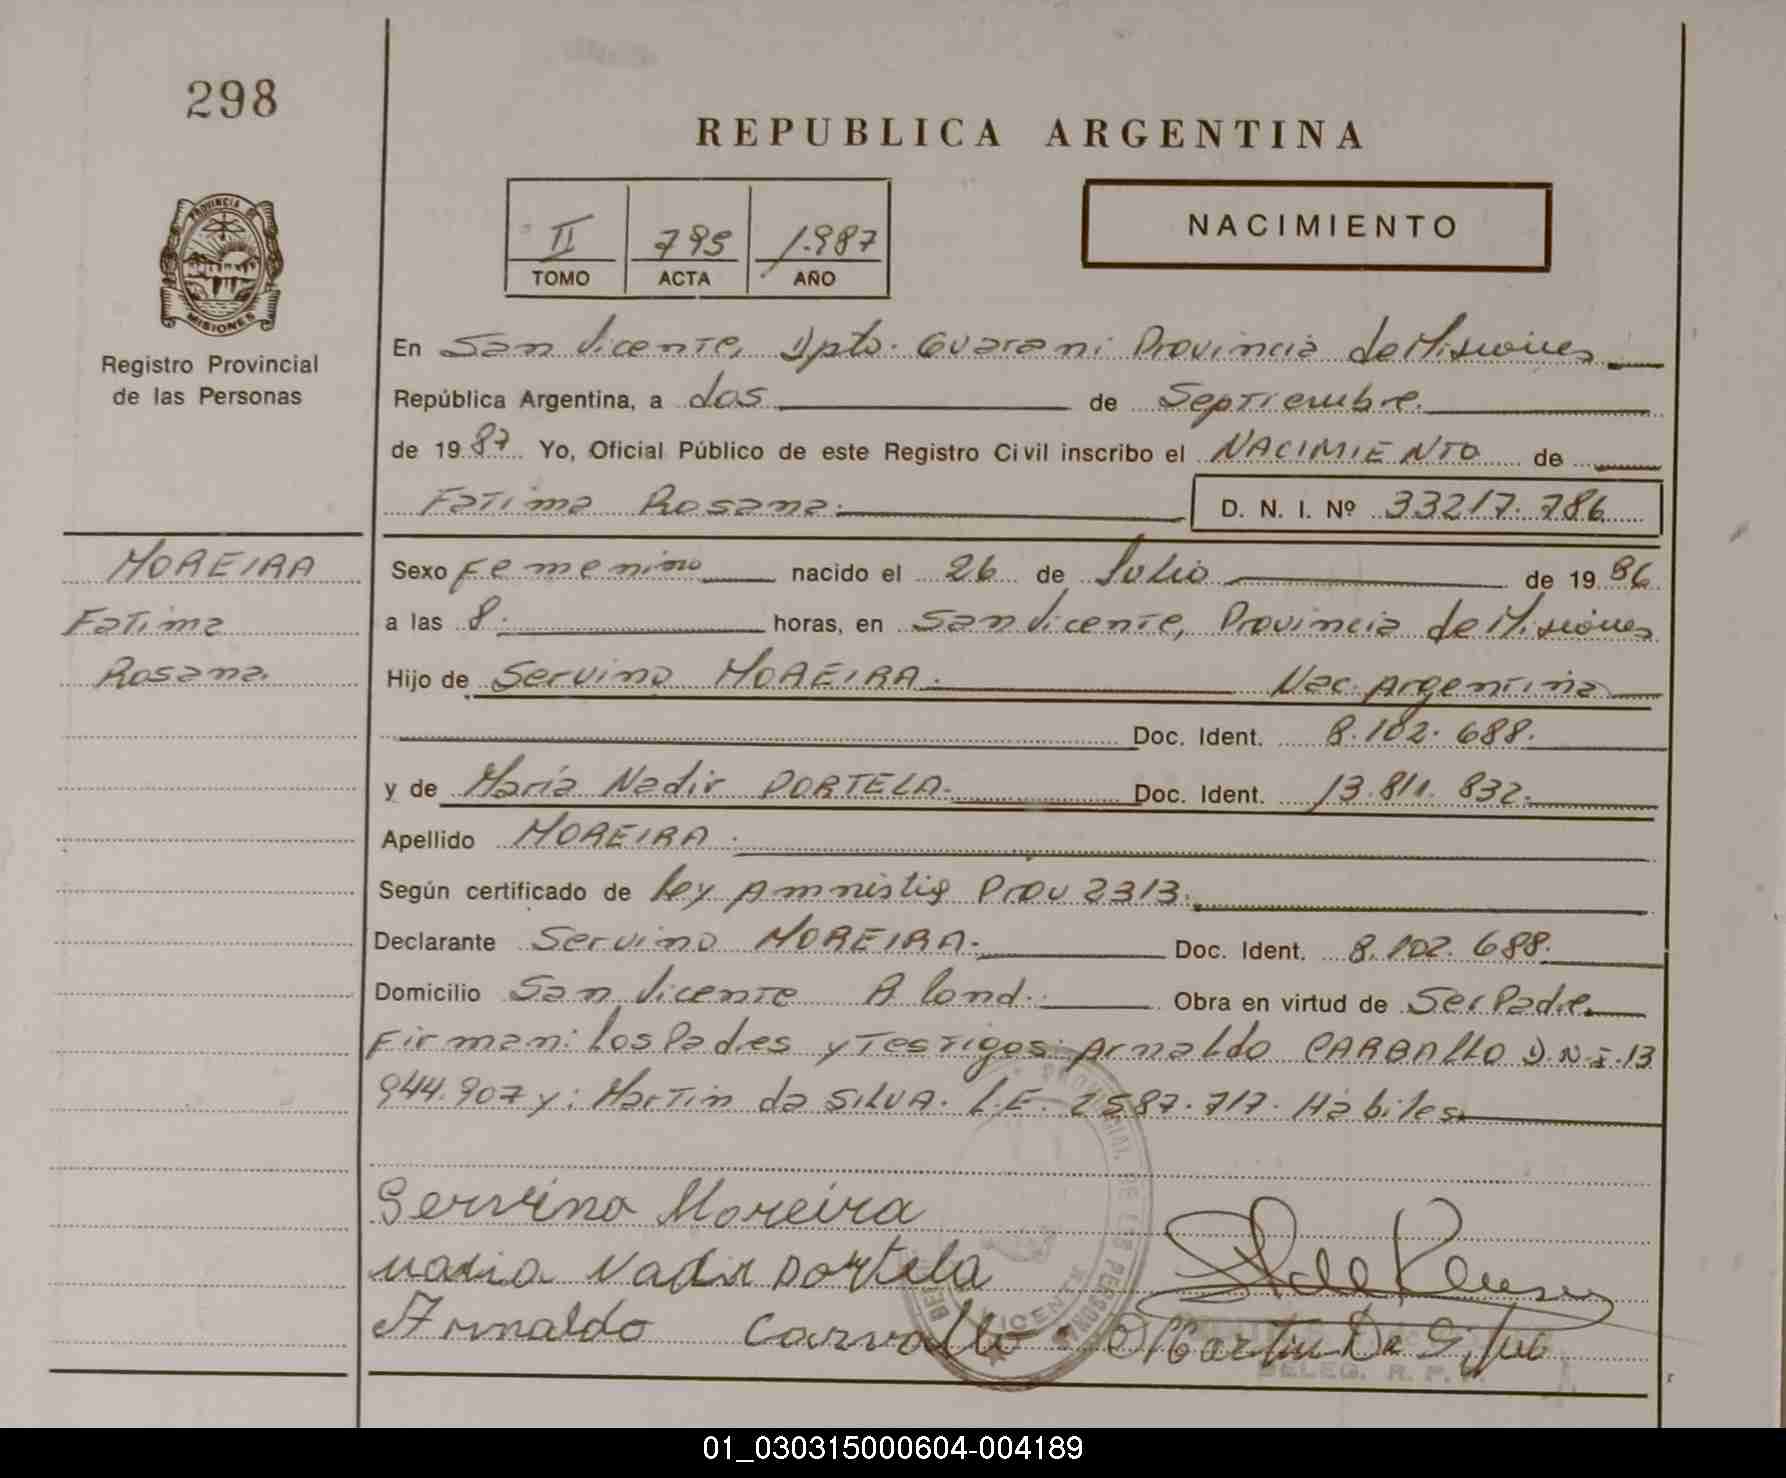 298
REPUBLICA ARGENTINA
II 795 1.987
TOMO ACTA AÑO
NACIMIENTO
PROVINCIA DE
MISIONES
Registro Provincial
de las Personas
En San Vicente, Dpto. Guarani Provincia de Misiones
República Argentina, a dos de Septiembre.
de 1987 Yo, Oficial Público de este Registro Civil inscribo el NACIMIENTO de
Fatima Rosana. D. N. I. Nº 33217.786
MOREIRA
Fatima
Rosana.
Sexo Femenino nacido el 26 de Julio de 1986
a las 8. horas, en San Vicente, Provincia de Misiones
Hijo de Servino MOREIRA. Nac. Argentina
Doc. Ident. 8.102.688.
y de María Nadir PORTELA. Doc. Ident. 13.811.832.
Apellido MOREIRA.
Según certificado de Ley Amnistia Prov 2313.
Declarante Servino MOREIRA. Doc. Ident. 8.102.688.
Domicilio San Vicente A Lond. Obra en virtud de Ser Padre.
Firman: los Padres y Testigos: Arnaldo CARBALLO D.N.I.13
944.907 y: Martin da SILVA. L.E. 2587.717. Hábiles
Servino Moreira
Maria Nadir Portela
Arnaldo Carvallo Martin Da Silva
PROVINCIAL DE LAS PERSONAS
DELEG. R. P. P.
01_030315000604-004189